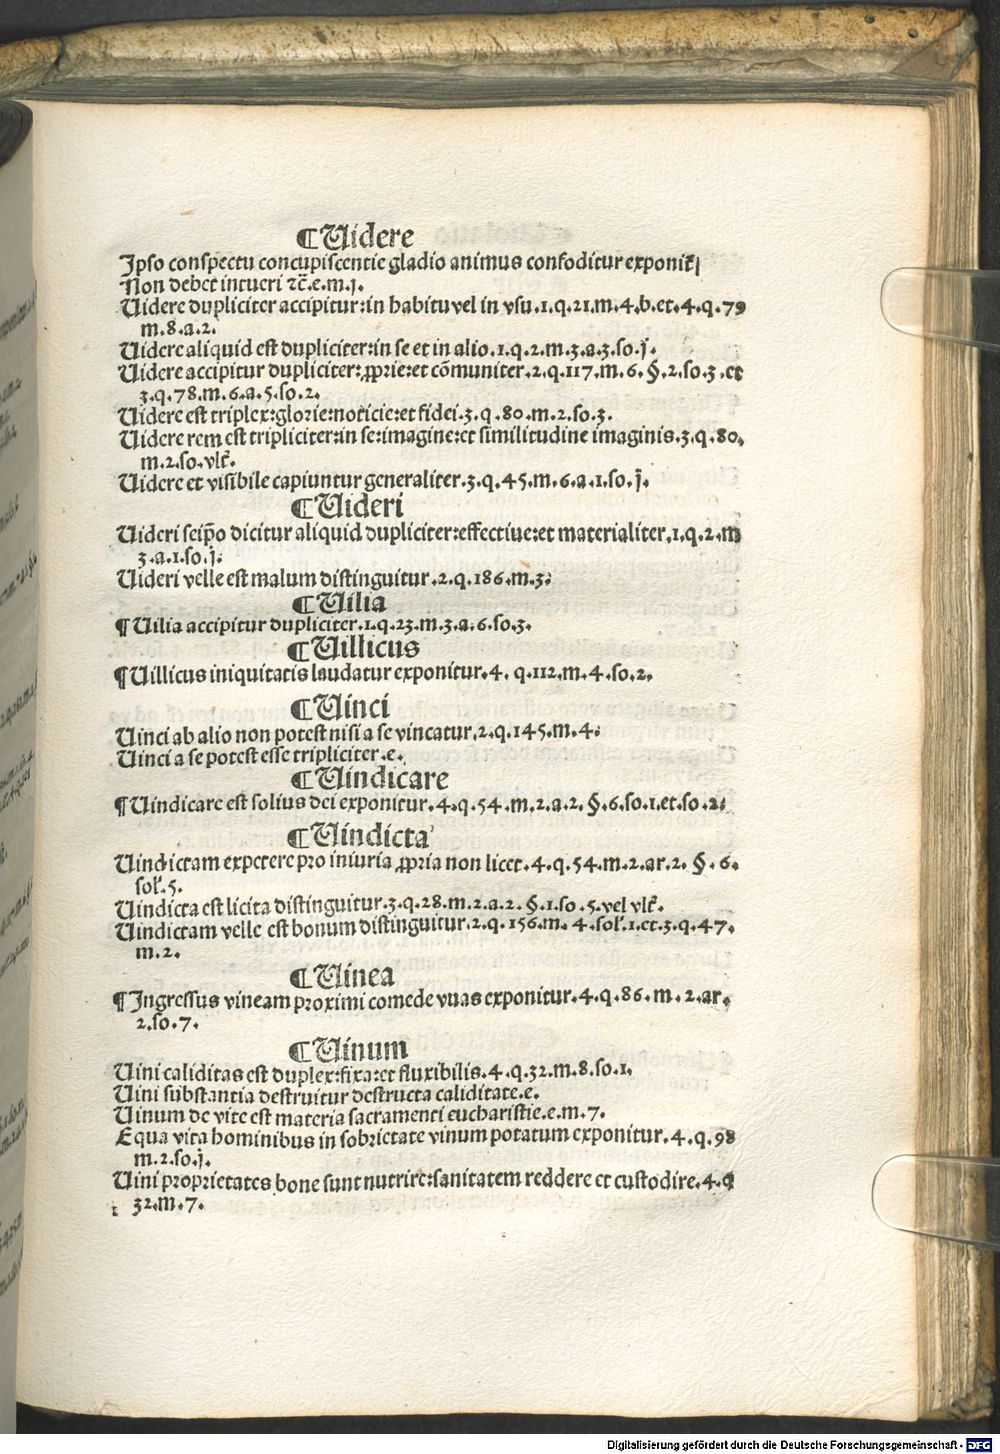 ¶ Uidere
Ipso conspectu concupiscentie gladio animus confoditur exponit̃
Non debet intueri ⁊c̃.e.m.j.
Uidere dupliciter accipitur:in habitu vel in vsu.1.q.21.m.4.b.et.4.q.79
m.8.a.2.
Uidere aliquid est dupliciter:in se et in alio.1.q.2.m.3.a.3.so.j.
Uidere accipitur dupliciter:ꝓprie:et cõmuniter.2.q.117.m.6.§.2.so.3.et
3.q.78.m.6.a.5.so.2.
Uidere est triplex:glorie:noticie:et fidei.3.q.80.m.2.so.3.
Uidere rem est tripliciter:in se:imagine:et similitudine imaginis.3.q.80.
m.2.so.vlt̃.
Uidere et visibile capiuntur generaliter.3.q.45.m.6.a.1.so.j.
¶ Uideri
Uideri seip̃o dicitur aliquid dupliciter:effectiue:et materialiter.1.q.2.m
3.a.1.so.j.
Uideri velle est malum distinguitur.2.q.186.m.3.
¶ Uilia
¶ Uilia accipitur dupliciter.1.q.23.m.3.a.6.so.3.
¶ Uillicus
¶ Uillicus iniquitatis laudatur exponitur.4.q.112.m.4.so.2.
¶ Uinci
Uinci ab alio non potest nisi a se vincatur.2.q.145.m.4.
Uinci a se potest esse tripliciter.e.
¶ Uindicare
¶ Uindicare est solius dei exponitur.4.q.54.m.2.a.2.§.6.so.1.et.so.2.
¶ Uindicta
Uindictam expetere pro iniuria ꝓpria non licet.4.q.54.m.2.ar.2.§.6.
sol̃.5.
Uindicta est licita distinguitur.3.q.28.m.2.a.2.§.1.so.5.vel vlt̃.
Uindictam velle est bonum distinguitur.2.q.156.m.4.sol̃.1.et.3.q.47.
m.2.
¶ Uinea
¶ Ingressus vineam proximi comede vuas exponitur.4.q.86.m.2.ar.
2.so.7.
¶ Uinum
Uini caliditas est duplex:fixa:et fluxibilis.4.q.32.m.8.so.1.
Uini substantia destruitur destructa caliditate.e.
Uinum de vite est materia sacramenti eucharistie.e.m.7.
Equa vita hominibus in sobrietate vinum potatum exponitur.4.q.98
m.2.so.j.
Uini proprietates bone sunt nutrire:sanitatem reddere et custodire.4.q
32.m.7.
Digitalisierung gefördert durch die Deutsche Forschungsgemeinschaft - DFG